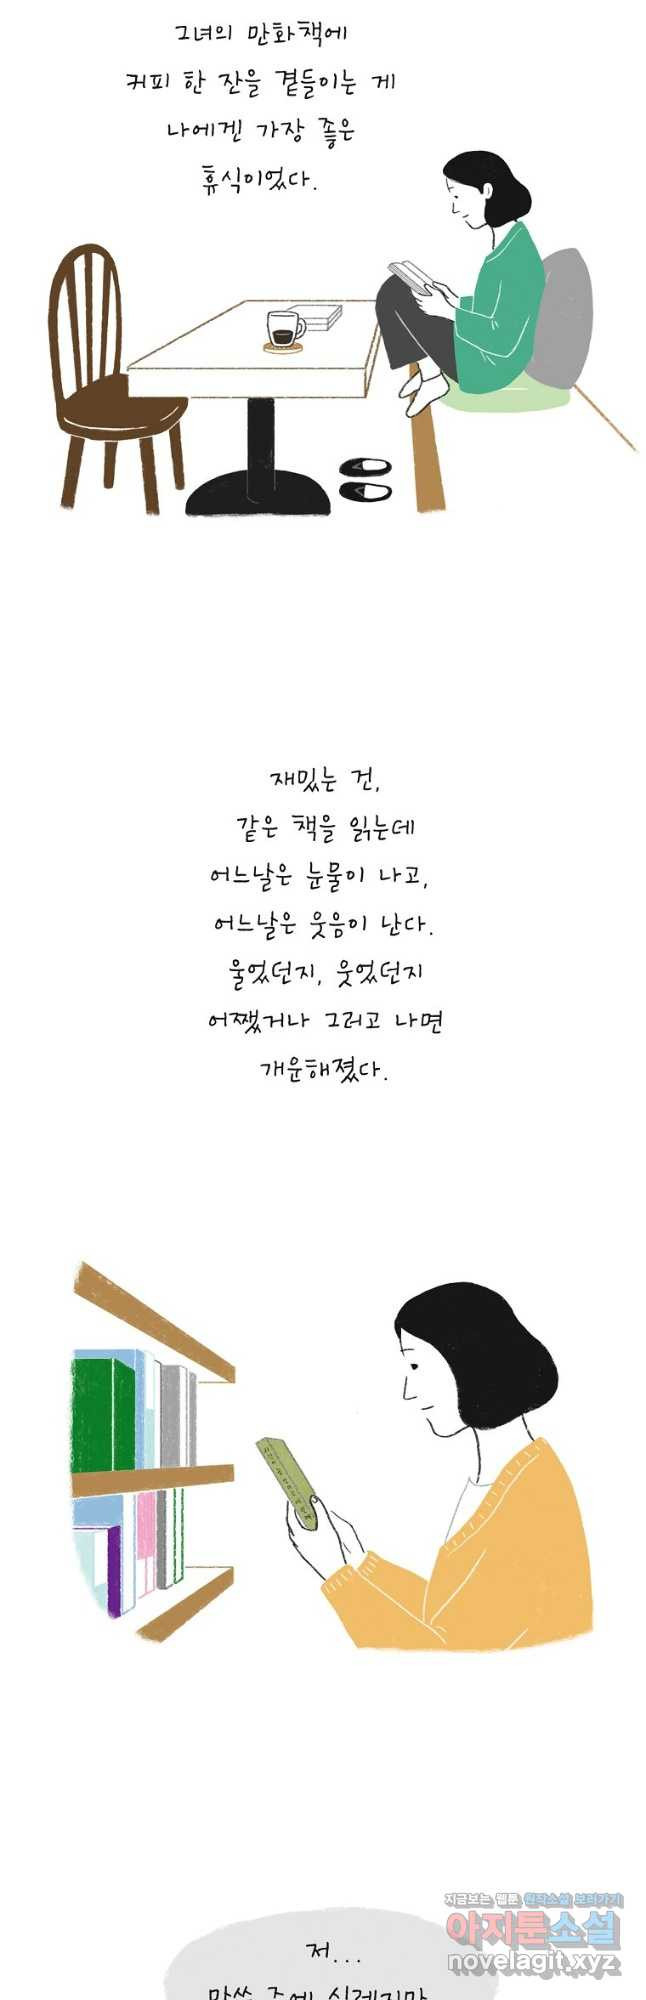 그녀의 만화책에
커피 한 잔을 곁들이는 게
나에겐 가장 좋은
휴식이었다.
재밌는 건,
같은 책을 읽는데
어느날은 눈물이 나고,
어느날은 웃음이 난다.
울었던지, 웃었던지
어쨌거나 그러고 나면
개운해졌다.
지금보는 웹툰 원작소설 보러가기
아지툰소설
novelagit.xyz
저...
말씀 중에 실례지만